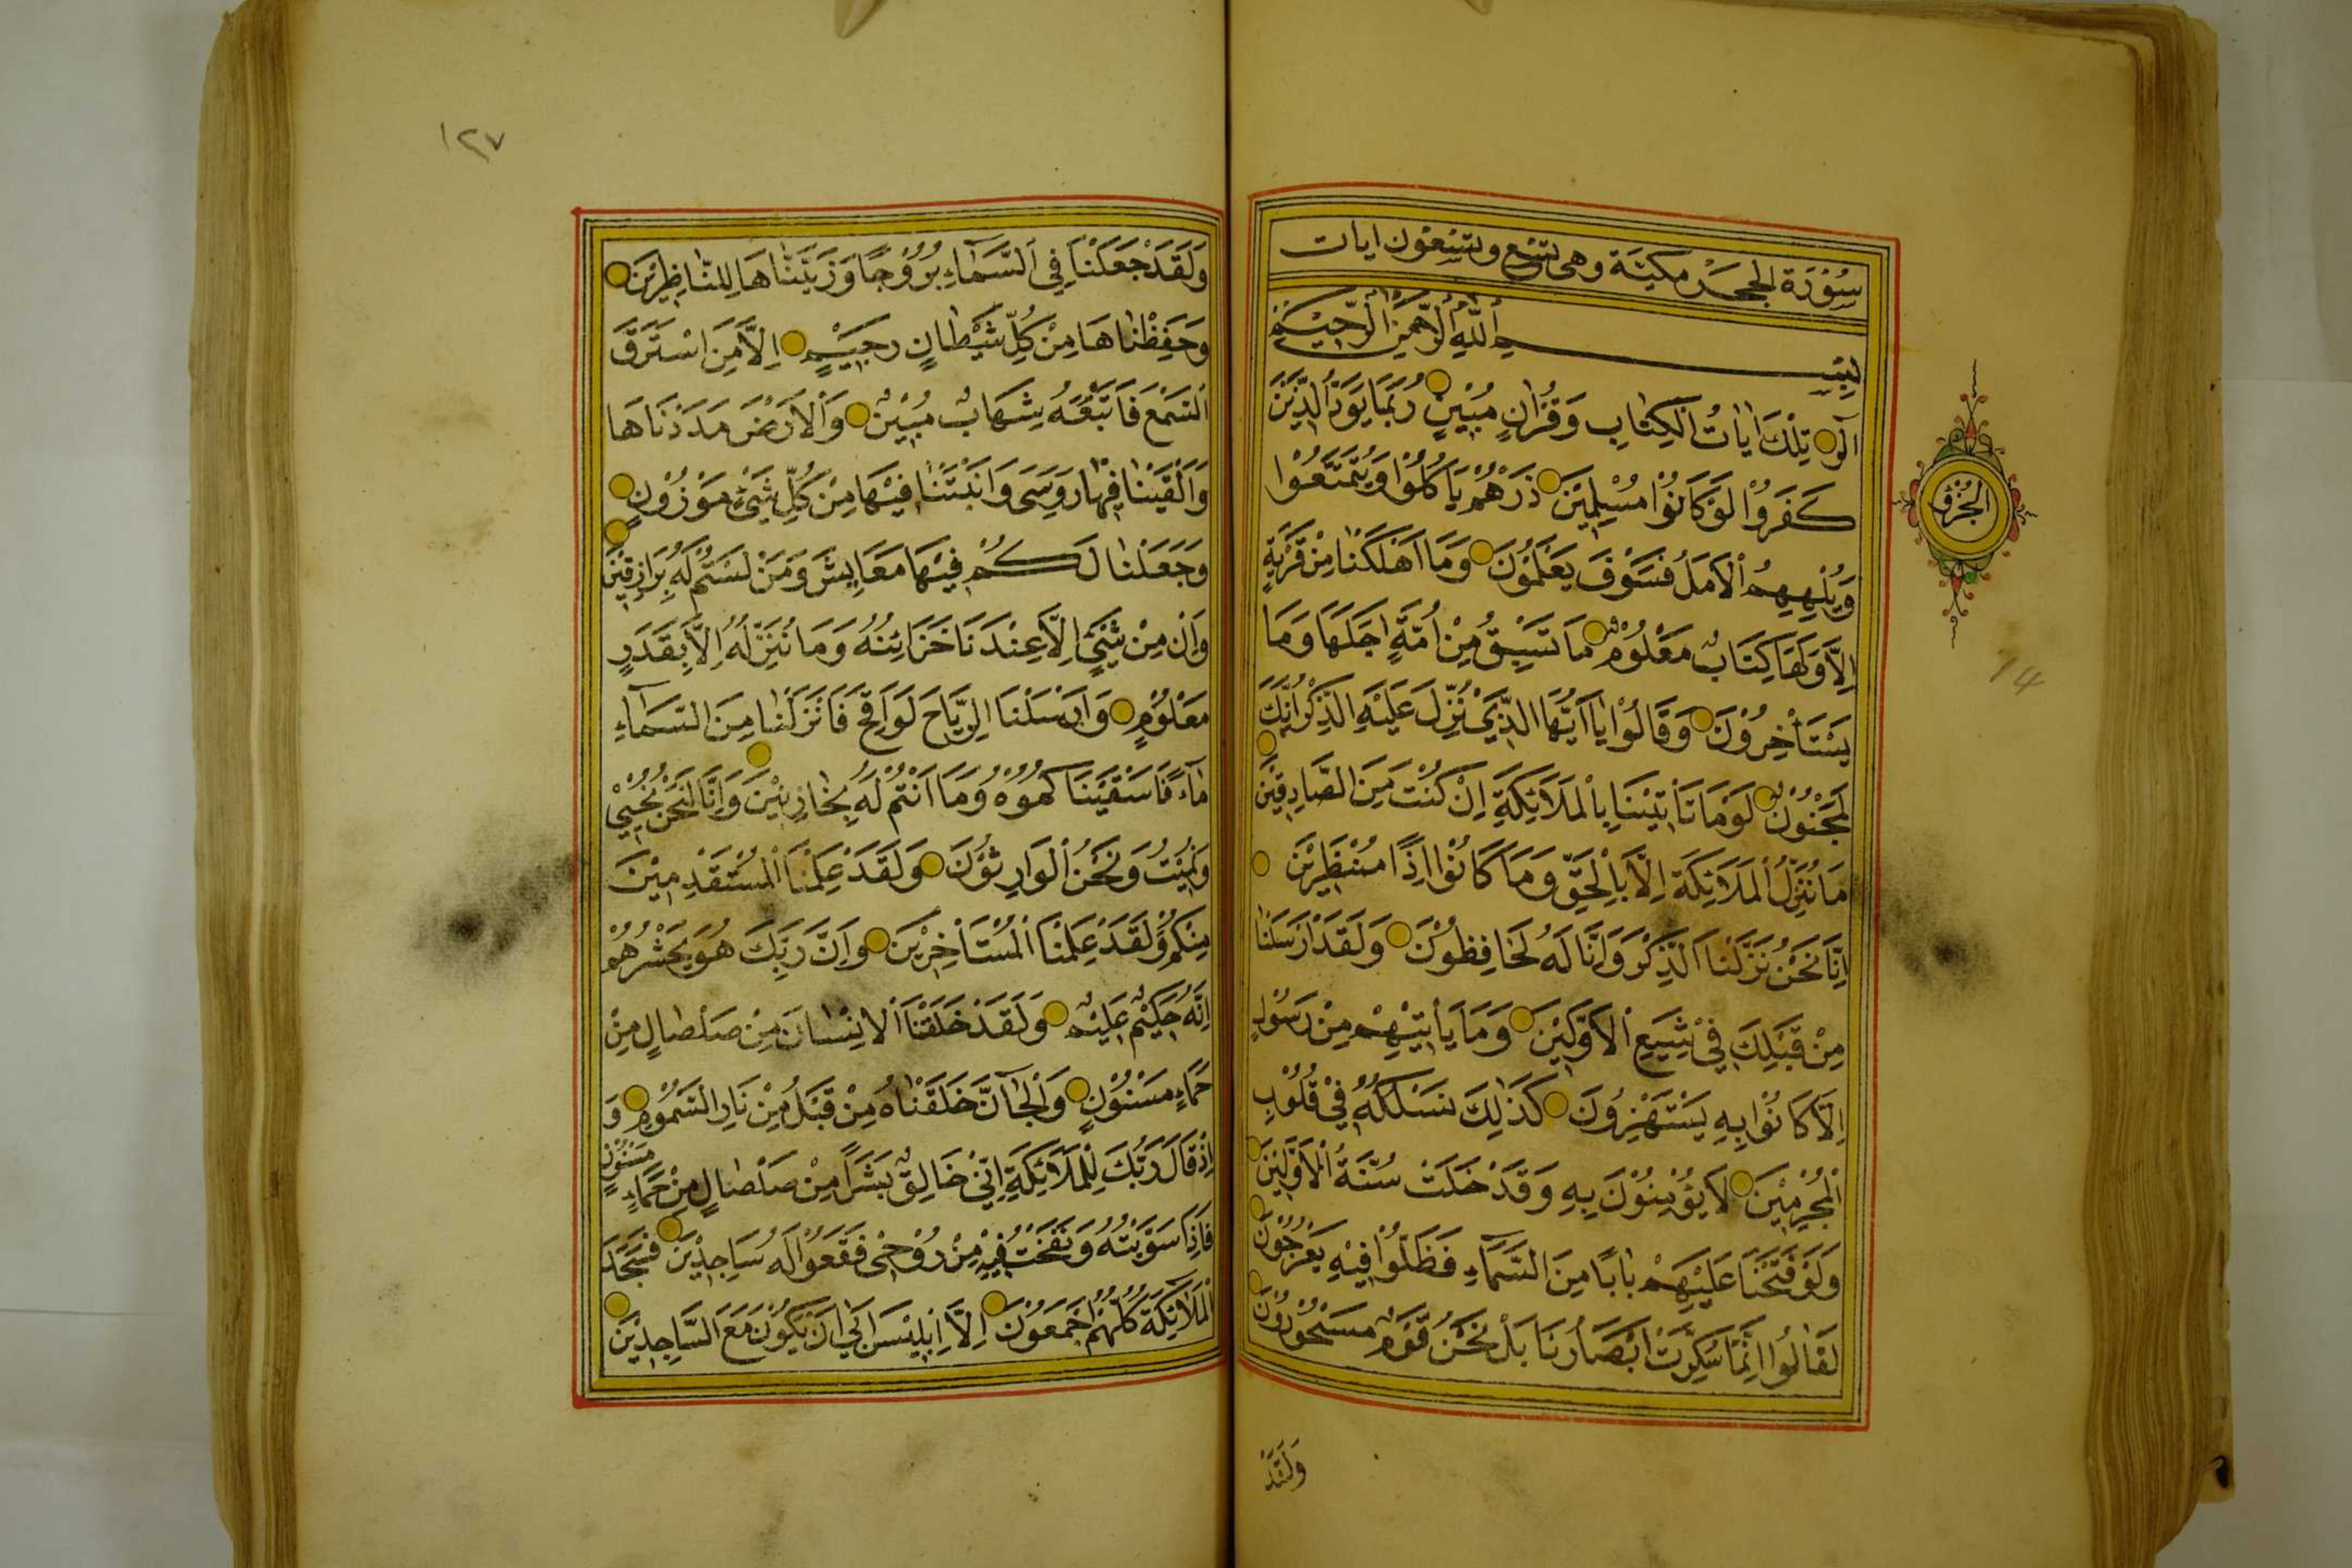 سُوْرَة الحجر مكيّة وهى تسع وتسعون ايات
بِسْمِ اللّٰهِ الرَّحْمٰنِ الرَّحِيْمِ
الٓر تِلْكَ اٰيَاتُ الْكِتَابِ وَقُرْاٰنٍ مُبِيْنٍ رُبَمَا يَوَدُّ الَّذِيْنَ
كَفَرُوْا لَوْ كَانُوْا مُسْلِمِيْنَ ذَرْهُمْ يَأْكُلُوْا وَيَتَمَتَّعُوْا
وَيُلْهِهِمُ الْاَمَلُ فَسَوْفَ يَعْلَمُوْنَ وَمَا اَهْلَكْنَا مِنْ قَرْيَةٍ
اِلَّا وَلَهَا كِتَابٌ مَعْلُوْمٌ مَا تَسْبِقُ مِنْ اُمَّةٍ اَجَلَهَا وَمَا
يَسْتَأْخِرُوْنَ وَقَالُوْا يَا اَيُّهَا الَّذِيْ نُزِّلَ عَلَيْهِ الذِّكْرُ اِنَّكَ
لَمَجْنُوْنٌ لَوْمَا تَأْتِيْنَا بِالْمَلَائِكَةِ اِنْ كُنْتَ مِنَ الصَّادِقِيْنَ
مَا نُنَزِّلُ الْمَلَائِكَةَ اِلَّا بِالْحَقِّ وَمَا كَانُوْا اِذًا مُنْظَرِيْنَ
اِنَّا نَحْنُ نَزَّلْنَا الذِّكْرَ وَاِنَّا لَهُ لَحَافِظُوْنَ وَلَقَدْ اَرْسَلْنَا
مِنْ قَبْلِكَ فِيْ شِيَعِ الْاَوَّلِيْنَ وَمَا يَأْتِيْهِمْ مِنْ رَسُوْلٍ
اِلَّا كَانُوْا بِهِ يَسْتَهْزِؤُنَ كَذٰلِكَ نَسْلُكُهُ فِيْ قُلُوْبِ
الْمُجْرِمِيْنَ لَا يُؤْمِنُوْنَ بِهِ وَقَدْ خَلَتْ سُنَّةُ الْاَوَّلِيْنَ
وَلَوْ فَتَحْنَا عَلَيْهِمْ بَابًا مِنَ السَّمَاءِ فَظَلُّوْا فِيْهِ يَعْرُجُوْنَ
لَقَالُوْا اِنَّمَا سُكِّرَتْ اَبْصَارُنَا بَلْ نَحْنُ قَوْمٌ مَسْحُوْرُوْنَ
وَلَقَدْ
الجزؤ
14
١٢٧
وَلَقَدْ جَعَلْنَا فِي السَّمَاءِ بُرُوْجًا وَزَيَّنَّاهَا لِلنَّاظِرِيْنَ
وَحَفِظْنَاهَا مِنْ كُلِّ شَيْطَانٍ رَجِيْمٍ اِلَّا مَنِ اسْتَرَقَ
السَّمْعَ فَاَتْبَعَهُ شِهَابٌ مُبِيْنٌ وَالْاَرْضَ مَدَدْنَاهَا
وَاَلْقَيْنَا فِيْهَا رَوَسِىَ وَاَنْبَتْنَا فِيْهَا مِنْ كُلِّ شَيْءٍ مَوْزُوْنٍ
وَجَعَلْنَا لَكُمْ فِيْهَا مَعَايِشَ وَمَنْ لَسْتُمْ لَهُ بِرَازِقِيْنَ
وَاِنْ مِنْ شَيْءٍ اِلَّا عِنْدَنَا خَزَائِنُهُ وَمَا نُنَزِّلُهُ اِلَّا بِقَدَرٍ
مَعْلُوْمٍ وَاَرْسَلْنَا الرِّيَاحَ لَوَاقِحَ فَاَنْزَلْنَا مِنَ السَّمَاءِ
مَاءً فَاَسْقَيْنَاكُمُوْهُ وَمَا اَنْتُمْ لَهُ بِخَازِنِيْنَ وَاِنَّا لَنَحْنُ نُحْيِيْ
وَنُمِيْتُ وَنَحْنُ الْوَارِثُوْنَ وَلَقَدْ عَلِمْنَا الْمُسْتَقْدِمِيْنَ
مِنْكُمْ وَلَقَدْ عَلِمْنَا الْمُسْتَاْخِرِيْنَ وَاِنَّ رَبَّكَ هُوَ يَحْشُرُهُمْ
اِنَّهُ حَكِيْمٌ عَلِيْمٌ وَلَقَدْ خَلَقْنَا الْاِنْسَانَ مِنْ صَلْصَالٍ مِنْ
حَمَاءٍ مَسْنُوْنٍ وَالْجَانَّ خَلَقْنَاهُ مِنْ قَبْلُ مِنْ نَارِ السَّمُوْمِ وَ
اِذْ قَالَ رَبُّكَ لِلْمَلَائِكَةِ اِنِّيْ خَالِقٌ بَشَرًا مِنْ صَلْصَالٍ مِنْ حَمَاءٍ مَسْنُوْنٍ
فَاِذَا سَوَّيْتُهُ وَنَفَخْتُ فِيْهِ مِنْ رُوْحِيْ فَقَعُوْا لَهُ سَاجِدِيْنَ فَسَجَدَ
الْمَلَائِكَةُ كُلُّهُمْ اَجْمَعُوْنَ اِلَّا اِبْلِيْسَ اَبٰى اَنْ يَكُوْنَ مَعَ السَّاجِدِيْنَ